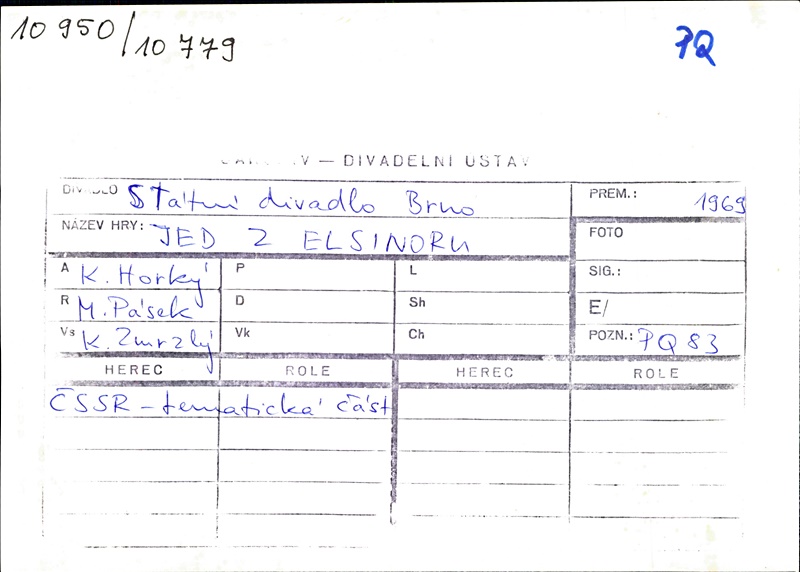 10 950/10 779
PQ
V — DIVADELNÍ ÚSTAV
DIVADLO Státní divadlo Brno PREM.: 1969
NÁZEV HRY: JED Z ELSINORU FOTO
A K. Horký P L SIG.:
R M. Pásek D Sh E/
Vs K. Zmrzlý Vk Ch POZN.: PQ 83
HEREC ROLE HEREC ROLE
ČSSR – tematická část